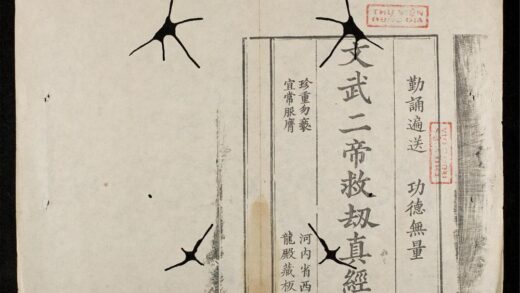 THƯ VIỆN
勤誦遍送 功德無量
文武二帝救刼真經
珍重勿褻
宜常服膺
河內省西
龍殿藏板